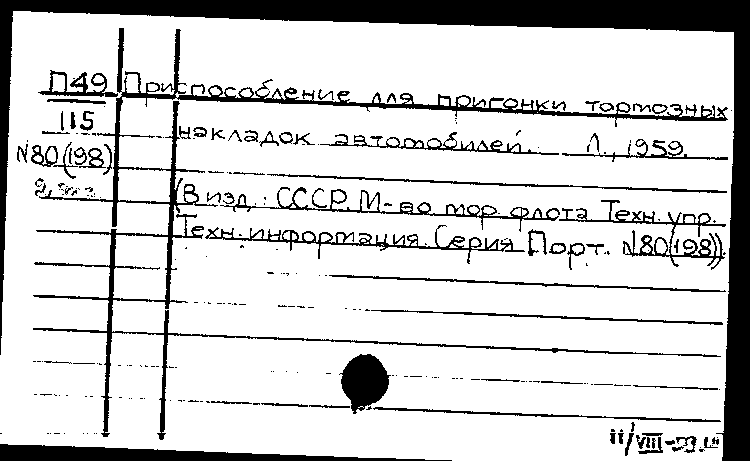 П49 Приспособление для пригонки тормозных
115
накладок автомобилей. Л., 1959.
N80(198)
(В изд.: СССР. М-во мор. флота Техн. упр.
Техн. информация. Серия Порт. N80(198))
11/VIII